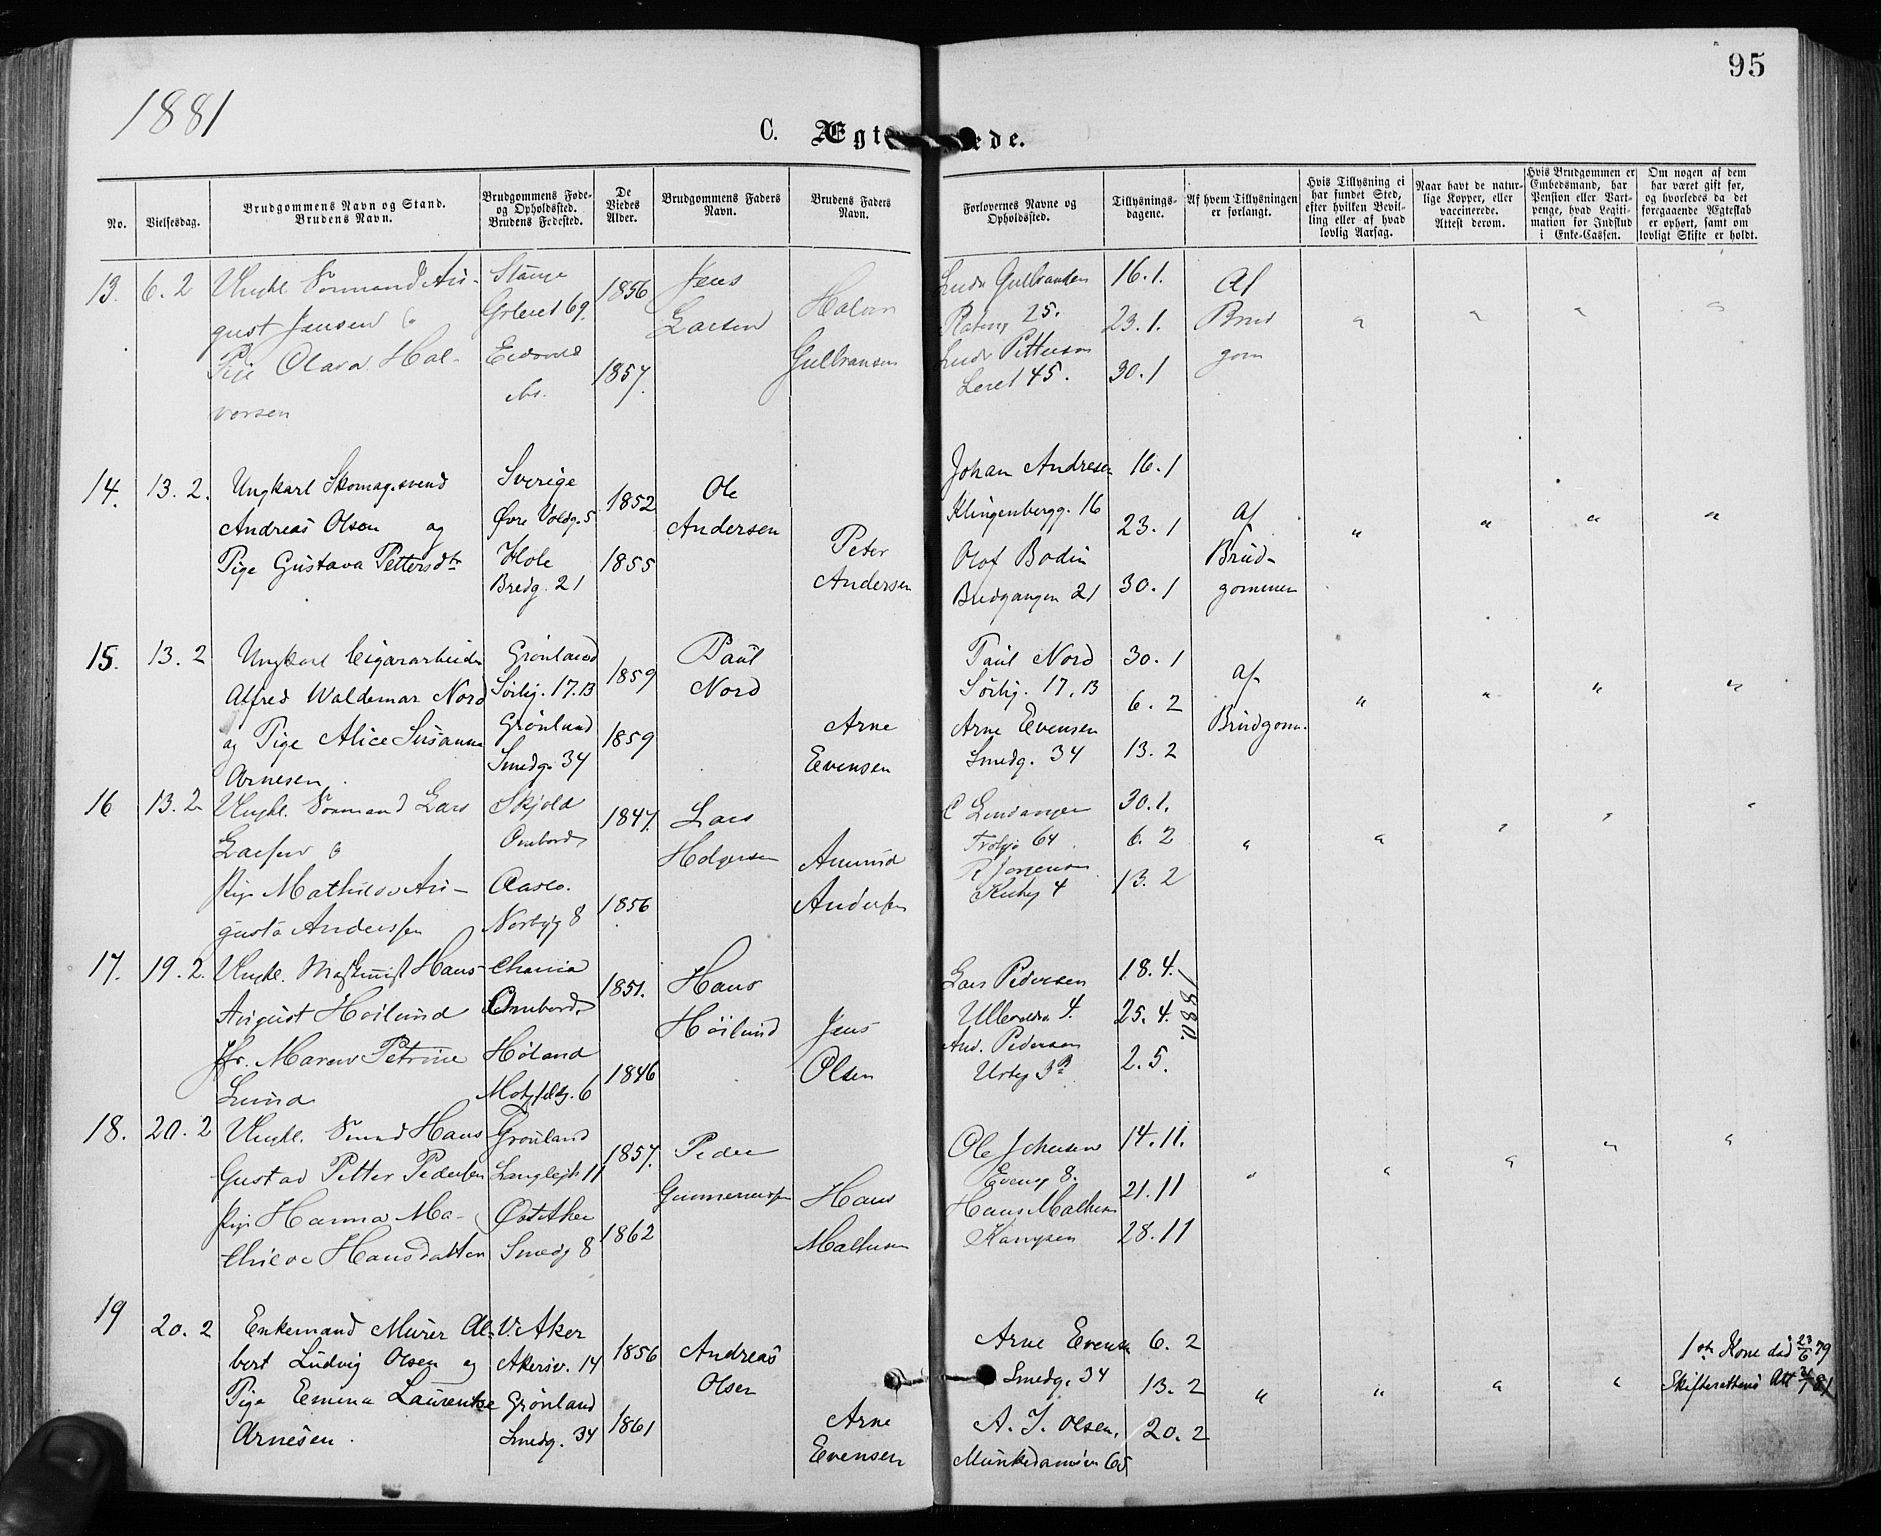 1881
95
C. Ægt ede.
No.
Vielsesdag.
Brudgommens Navn og Stand.
Brudens Navn.
Brudgommens Føde-
og Opholdssted.
Brudens Fødested.
De
Viedes
Alder.
Brudgommens Faders
Navn.
Brudens Faders
Navn.
Forlovernes Navne og
Opholdssted.
Tillysnings-
dagene.
Af hvem Tillysningen
er forlangt.
Hvis Tillysning ei
har fundet Sted,
efter hvilken Bevil-
ling eller af hvad
lovlig Aarsag.
Naar havt de natur-
lige Kopper, eller
vaccinerede.
Attest derom.
Hvis Brudgommen er
Embedsmand, har
Pension eller Vart-
penge, hvad Legiti-
mation for Indskud
i Enke-Cassen.
Om nogen af dem
har været gift før,
og hvorledes da det
foregaaende Ægteskab
er ophørt, samt om
lovligt Skifte er holdt.
13.
6.2
Ungkl. Sømand Au-
gust Jensen
Pige Olava Hal-
vorsen
Stange
Grleret 69.
1856
1857.
Jens
Larsen
Halvor
Gulbransen
Gulbransen
25.
Pettersen
Leret 45.
16.1.
23.1.
30.1
Af
Brud
gom
14.
13.2.
Ungkarl Skomag.svend
Andreas Olsen og
Pige Gustava Pettersdtr
Sverige
Øvre Voldg. 5
Hole
Bredg. 21
1852
1855
Ole
Andersen
Peter
Andersen
Johan Andresen
Klingenbergg. 16
Olof Bodin
Bredgangen 21
16.1
23.1
30.1
af
Brud-
gommen
" " " "
15.
13.2
Ungkarl Cigararbeider
Alfred Waldemar Nord
og Pige Alice Susanna
Arnesen.
Grønland
Sørlig. 17.13
Grønland
Smedg. 34
1859
1859
Paul
Nord
Arne
Evensen
Paul Nord
Sørlig. 17.13
Arne Evensen
Smedg. 34
30.1
6.2
13.2
af
Brudgom.
" " " "
16
13.2
Ungkl. Sømand Lars
Larsen
Pige Mathilde Au-
gusta Anderssen
Skjold
Ombord
Norbyg 8
1847.
1856
Lars
Holgersen
Amund
Anderssen
64
4
30.1.
6.2
13.2
17.
19.2.
Ungkl. Maskinist Hans
August Høilund
Maren Petrine
Lund
Chania
Ombord
Høland
Motzfeldtg. 6
1851.
1846
Hans
Høilund
Jens
Olsen
Lars Pedersen
4.
And. Pedersen
18.4.
25.4.
2.5.
1880.
18.
20.2
Ungkl. Smed Hans
Gustav Petter Pedersen
Pige Hanna Ma-
thilde Hansdatter
Grønland
Langleik 11
Øst Aker
Smedg 8
1857.
1862
Peder
Hans
Mathisen
Ole Johnsen
8.
Hans Mathisen
Kampen
14.11.
21.11
28.11
19
20.2
Enkemand Murer Al-
bert Ludvig Olsen og
Pige Emma Laurentze
Arnesen.
V. Aker
Akersv. 14
Grønland
Smedg. 34
1856
1861
Andreas
Olsen
Arne
Evensen
Arne Evensen
Smedg. 34
A. J. Olsen,
Munkedamsvn 65
6.2
13.2
20.2
" " " "
1ste Kone død 23/6 79
Skifterettens Att